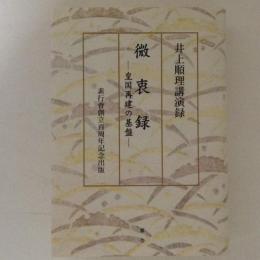 井上順理講演録
微衷録
―皇国再建の基盤―
素行会創立百周年記念出版